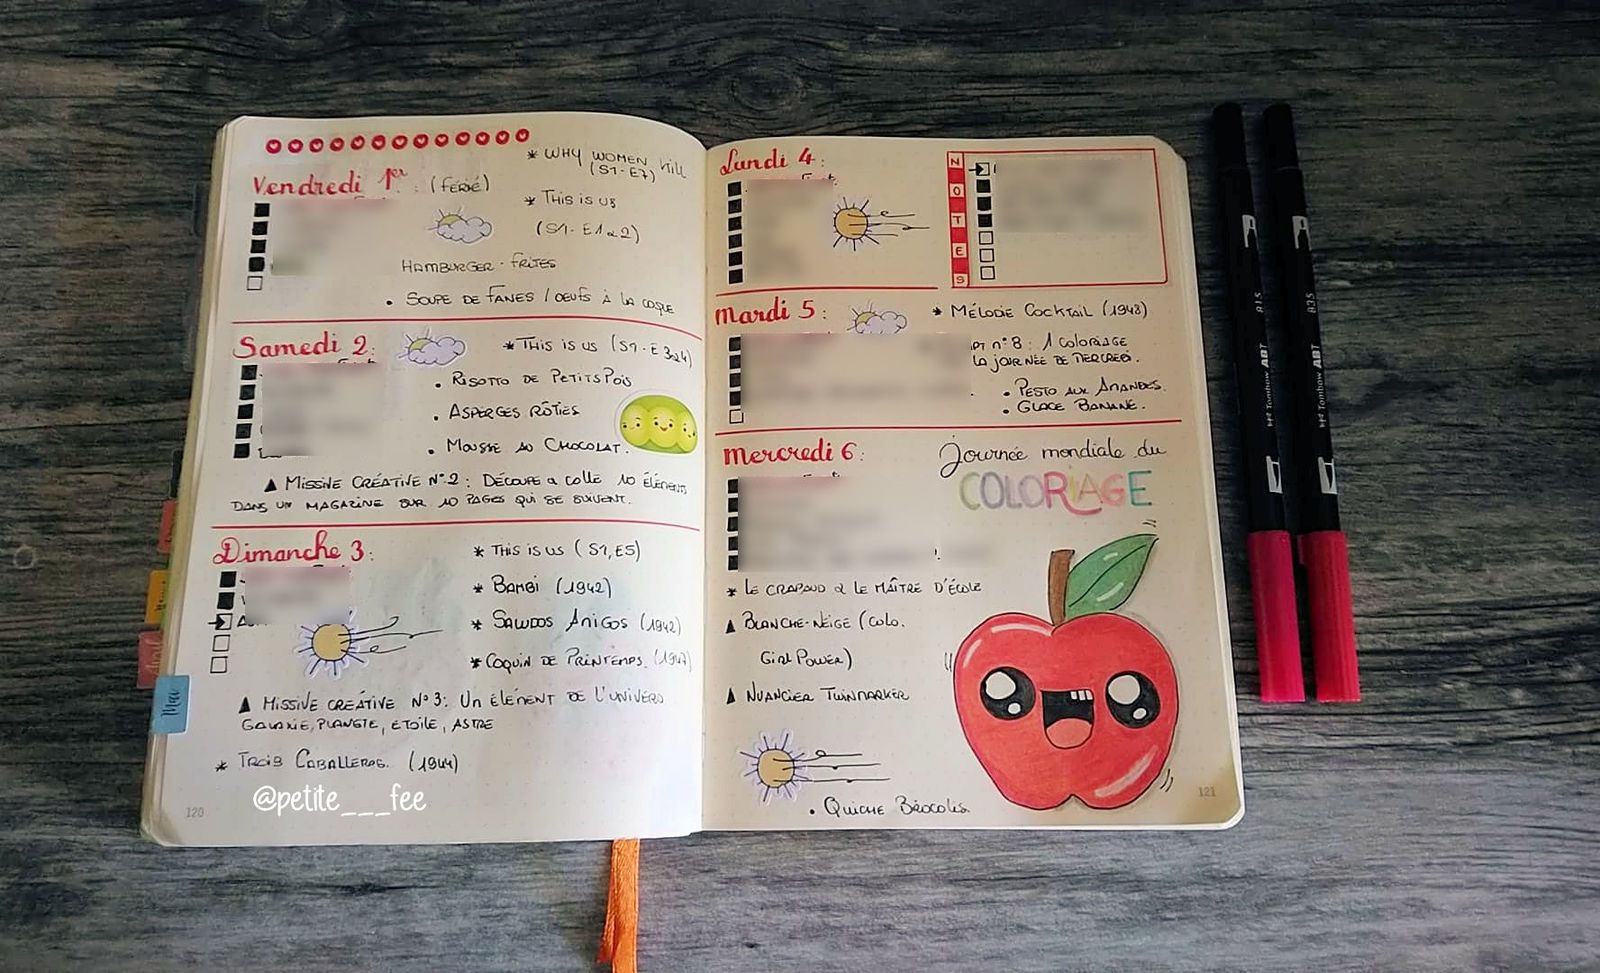 Vendredi 1er : (férié)
* WHY WOMEN KILL
(S1-E7)
* THIS IS US
(S1-E1 à 2)
HAMBURGER-FRITES
• SOUPE DE FANES / OEUFS À LA COQUE
Samedi 2:
* THIS IS US (S1-E3à4)
• RISOTTO DE PETITS POIS
• ASPERGES RÔTIES
• MOUSSE AU CHOCOLAT.
▲ MISSIVE CRÉATIVE N°2 : DÉCOUPE & COLLE 10 ÉLÉMENTS
DANS UN MAGAZINE SUR 10 PAGES QUI SE SUIVENT.
Dimanche 3:
* THIS IS US (S1, E5)
* BAMBI (1942)
* SALUDOS AMIGOS (1942)
* COQUIN DE PRINTEMPS. (1947)
▲ MISSIVE CRÉATIVE N°3: UN ÉLÉMENT DE L'UNIVERS
GALAXIE, PLANÈTE, ÉTOILE, ASTRE
* TROIS CABALLEROS. (1944)
120
@petite___fee
Mai
Lundi 4:
NOTES
Mardi 5:
* MÉLODIE COCKTAIL (1948)
PT N°8 : 1 COLORIAGE
LA JOURNÉE DE MERCREDI.
• PESTO AUX AMANDES.
• GLACE BANANE.
Mercredi 6:
Journée mondiale du
COLORIAGE
* LE CRAPAUD & LE MAÎTRE D'ÉCOLE
▲ BLANCHE-NEIGE (COLO.
GIRL POWER)
▲ NUANCIER TWINMARKER
• QUICHE BROCOLIS
121
815
Tombow ABT
835
Tombow ABT